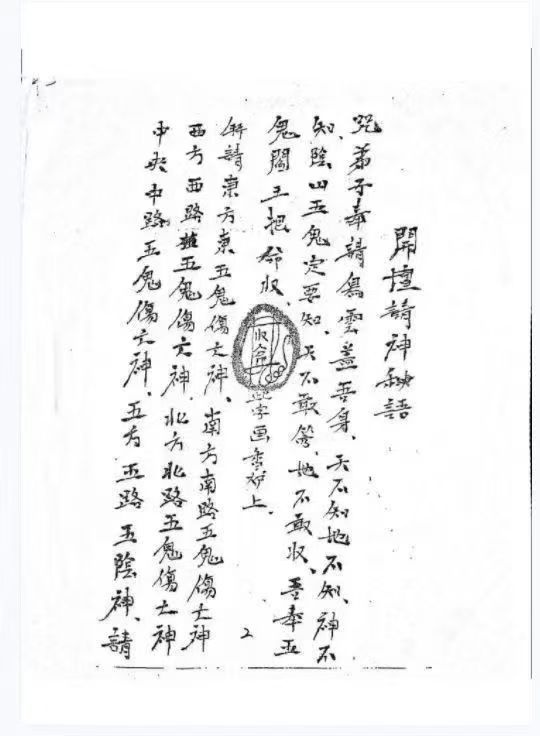 開壇請神秘語
咒弟子奉請烏雲蓋吾身、天不知地不知、神不
知、陰山五鬼定要知、天不敢答、地不敢收、吾奉五
鬼閻王把命收、
收命
此字画香炉上.
奉請東方東五鬼傷亡神、南方南路五鬼傷亡神
西方西路五鬼傷亡神.北方北路五鬼傷亡神
中央中路五鬼傷亡神、五方五路五陰神、請
2